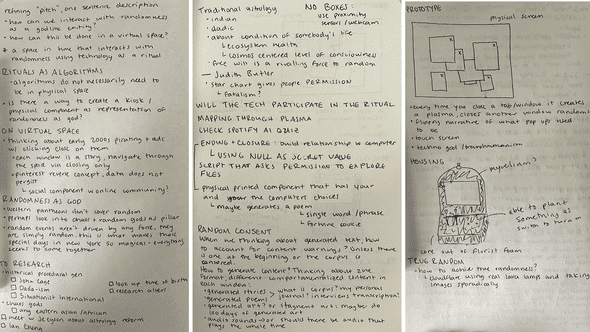 refining "pitch", one sentence description
• how can we interact with randomness
as a godlike entity?
• How can this be done in a virtual space?
* a space in time that interacts with
randomness using technology as a ritual
RITUALS AS ALGORITHMS
• algorithms do not necessarily need to
be in physical space
• is there a way to create a kiosk /
physical component as representation of
randomness as god?
ON VIRTUAL SPACE
• thinking about early 2000s pirating + ads
w/ clicking close on them
• each window is a story, navigate through
the space via closing only
• pinterest reverse concept, data does not
persist
↳ social component w online community?
RANDOMNESS AS GOD
• western pantheons don't cover random
• perhaps look into chaos + random gods as pillar
• random events aren't driven by any force, they
are simply random. this is what makes those
special days in new york so magical - everything
seems to come together.
TO RESEARCH
• historical procedural gen
John Cage
Dada-ism
Situationist International
look up time of birth
research aliens
• chaos gods
any eastern asian / african
meet w Jetson about altering reform
Ian Cheng
Traditional astrology
• indian
• dadic
• about condition of somebody's life
↳ ecosystem health
↳ cosmos centered level of consciousness
• free will is a rivalling force to random
— Judith Butler
• star chart gives people PERMISSION
↳ fatalism?
NO BOXES:
use proximity
sensors / webcam
WILL THE TECH PARTICIPATE IN THE RITUAL
MAPPING THROUGH PLASMA
CHECK SPOTIFY AI QUIZ
ENDING + CLOSURE: build relationship w computer
↳ USING NULL AS SECRET VALUE
SCRIPT THAT ASKS PERMISSION TO EXPLORE
FILES
physical printed component that has your
and your the computers choices
↳ maybe generates a poem
↳ single word / phrase
↳ fortune cookie
RANDOM CONSENT
When we thinking about generated text, how
do we account for content warnings? Unless there
is one at the beginning or the corpus is
censored.
How to generate content? Thinking about zine
format, different compartmentalized content in
each window:
• generated stories > what is corpus? my personal
• generated poems journal? interviews? transcription?
• generated art? or stagnant art? maybe do
100 days of generated art
• audio sounds → or should there be audio that
plays the whole time
PROTOTYPE
physical screen
x
x
x
x
• every time you close a tab/window it creates
a plasma, closes another window randomly
• flipping narrative of what pop ups used
to be
• touch screen
• techno god / transhumanism
HOUSING
mycelium?
able to plant
something as
switch to turn on
core out of florist foam
TRUE RANDOM
• how to achieve true randomness?
↳ cloudflare using real lava lamps and taking
images sporadically